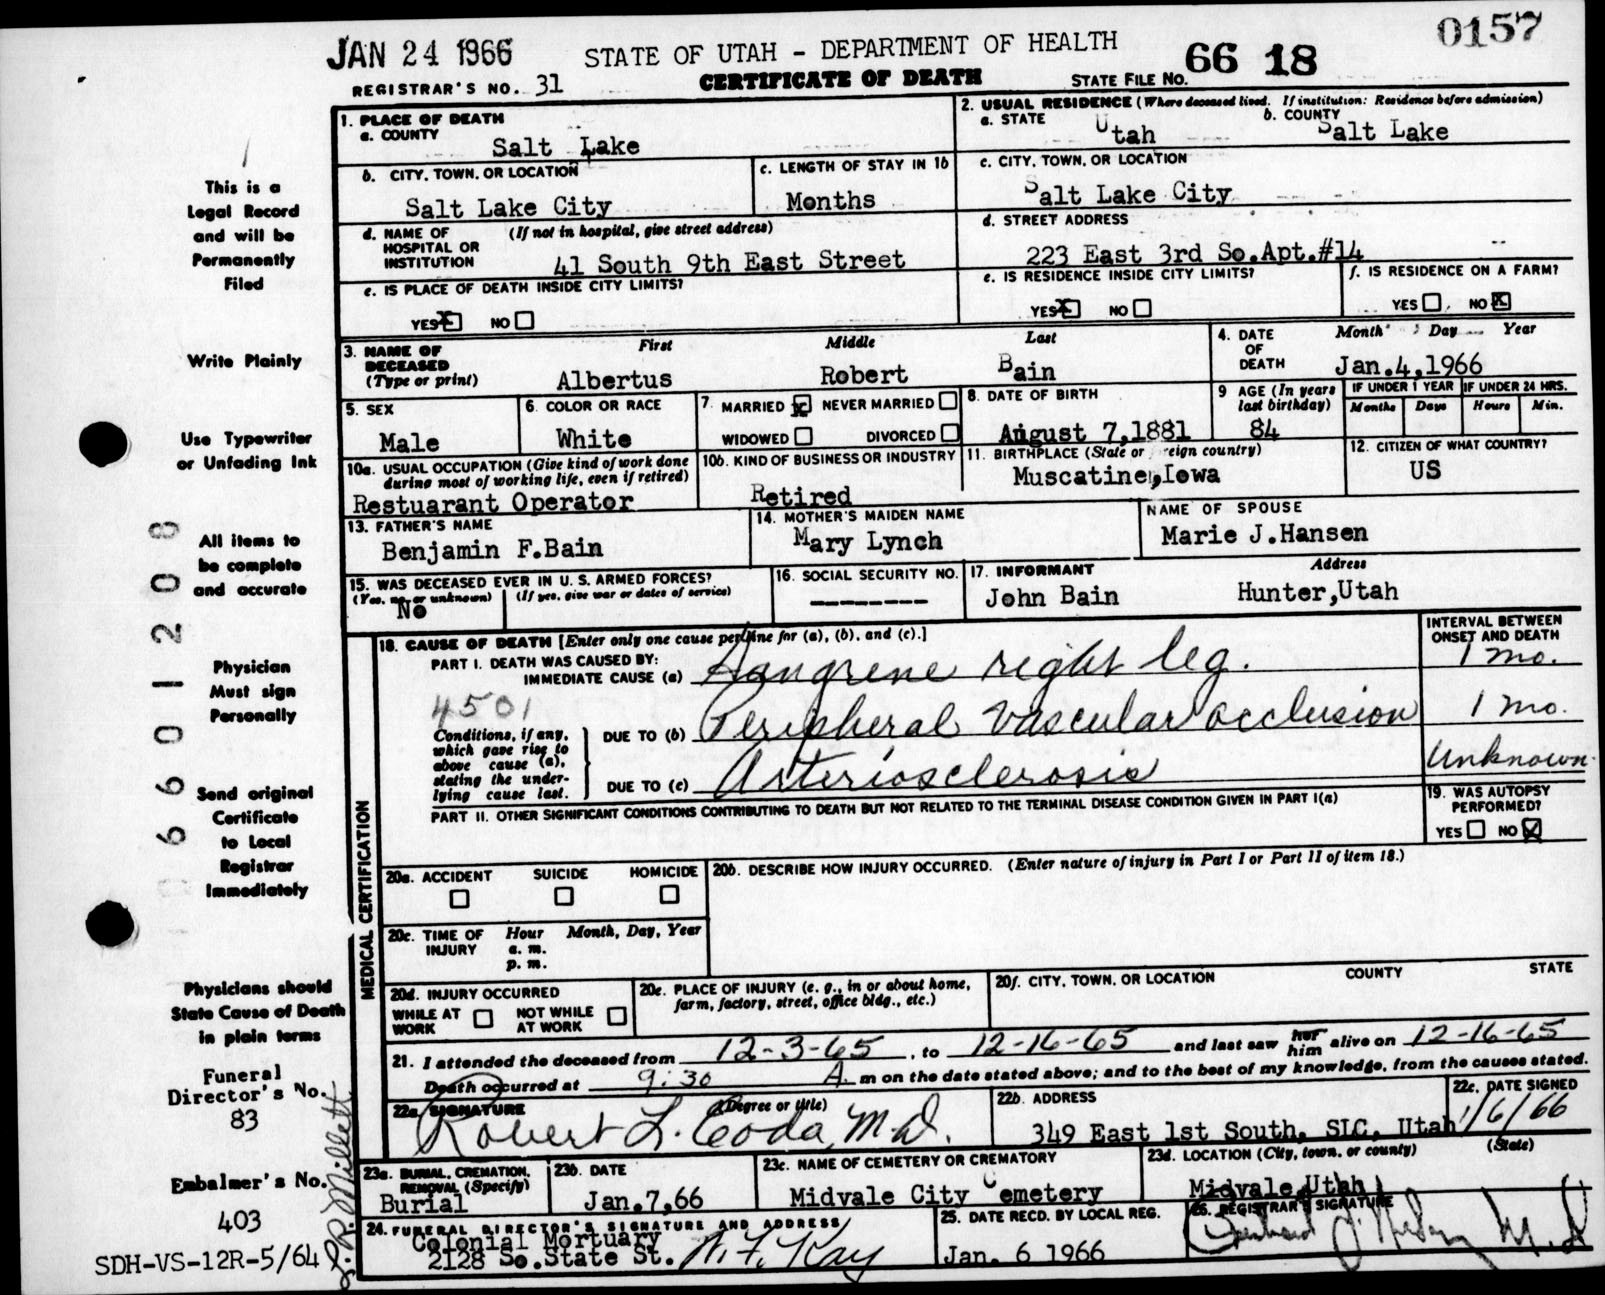 JAN 24 1966
STATE OF UTAH - DEPARTMENT OF HEALTH
66 18
0157
REGISTRAR'S NO. 31
CERTIFICATE OF DEATH
STATE FILE NO.
This is a
Legal Record
and will be
Permanently
Filed
Write Plainly
Use Typewriter
or Unfading Ink
All items to
be complete
and accurate
Physician
Must sign
Personally
Send original
Certificate
to Local
Registrar
Immediately
Physicians should
State Cause of Death
in plain terms
Funeral
Director's No.
83
Embalmer's No.
403
SDH-VS-12R-5/64
6 6 0 1 2 0 8
1. PLACE OF DEATH
a. COUNTY
Salt Lake
2. USUAL RESIDENCE (Where deceased lived. If institution: Residence before admission)
a. STATE
Utah
b. COUNTY
Salt Lake
b. CITY, TOWN, OR LOCATION
Salt Lake City
c. LENGTH OF STAY IN 1b
Months
c. CITY, TOWN, OR LOCATION
Salt Lake City
d. NAME OF HOSPITAL OR INSTITUTION
(If not in hospital, give street address)
41 South 9th East Street
d. STREET ADDRESS
223 East 3rd So.Apt.#14
e. IS PLACE OF DEATH INSIDE CITY LIMITS?
YES X NO
e. IS RESIDENCE INSIDE CITY LIMITS?
YES X NO
f. IS RESIDENCE ON A FARM?
YES NO X
3. NAME OF DECEASED (Type or print)
First Middle Last
Albertus Robert Bain
4. DATE OF DEATH
Month Day Year
Jan.4,1966
5. SEX
Male
6. COLOR OR RACE
White
7. MARRIED X NEVER MARRIED
WIDOWED DIVORCED
8. DATE OF BIRTH
August 7,1881
9 AGE (In years last birthday)
84
IF UNDER 1 YEAR
Months Days
IF UNDER 24 HRS.
Hours Min.
10a. USUAL OCCUPATION (Give kind of work done during most of working life, even if retired)
Restuarant Operator
10b. KIND OF BUSINESS OR INDUSTRY
Retired
11. BIRTHPLACE (State or reign country)
Muscatine,Iowa
12. CITIZEN OF WHAT COUNTRY?
US
13. FATHER'S NAME
Benjamin F.Bain
14. MOTHER'S MAIDEN NAME
Mary Lynch
NAME OF SPOUSE
Marie J.Hansen
15. WAS DECEASED EVER IN U. S. ARMED FORCES?
(Yes, no, or unknown) (If yes, give war or dates of service)
No
16. SOCIAL SECURITY NO.
--------
17. INFORMANT
John Bain
Address
Hunter,Utah
MEDICAL CERTIFICATION
18. CAUSE OF DEATH [Enter only one cause per line for (a), (b), and (c).]
INTERVAL BETWEEN ONSET AND DEATH
PART I. DEATH WAS CAUSED BY:
IMMEDIATE CAUSE (a) Gangrene right leg. 1 mo.
4501
Conditions, if any, which gave rise to above cause (a), stating the underlying cause last.
DUE TO (b) Peripheral vascular occlusion 1 mo.
DUE TO (c) Arteriosclerosis Unknown
PART II. OTHER SIGNIFICANT CONDITIONS CONTRIBUTING TO DEATH BUT NOT RELATED TO THE TERMINAL DISEASE CONDITION GIVEN IN PART I(a)
19. WAS AUTOPSY PERFORMED?
YES NO X
20a. ACCIDENT SUICIDE HOMICIDE
20b. DESCRIBE HOW INJURY OCCURRED. (Enter nature of injury in Part I or Part II of item 18.)
20c. TIME OF INJURY
Hour Month, Day, Year
a. m.
p. m.
20d. INJURY OCCURRED
WHILE AT WORK NOT WHILE AT WORK
20e. PLACE OF INJURY (e. g., in or about home, farm, factory, street, office bldg., etc.)
20f. CITY, TOWN, OR LOCATION COUNTY STATE
21. I attended the deceased from 12-3-65, to 12-16-65 and last saw her him alive on 12-16-65
Death occurred at 9:30 A. m on the date stated above; and to the best of my knowledge, from the causes stated.
22a. SIGNATURE (Degree or title)
Robert L. Coda, M.D.
22b. ADDRESS
349 East 1st South, SLC, Utah
22c. DATE SIGNED
1/6/66
23a. BURIAL, CREMATION, REMOVAL (Specify)
Burial
23b. DATE
Jan.7,66
23c. NAME OF CEMETERY OR CREMATORY
Midvale City Cemetery
23d. LOCATION (City, town, or county) (State)
Midvale,Utah
24. FUNERAL DIRECTOR'S SIGNATURE AND ADDRESS
Colonial Mortuary
2128 So.State St.
25. DATE RECD. BY LOCAL REG.
Jan. 6 1966
26. REGISTRAR'S SIGNATURE